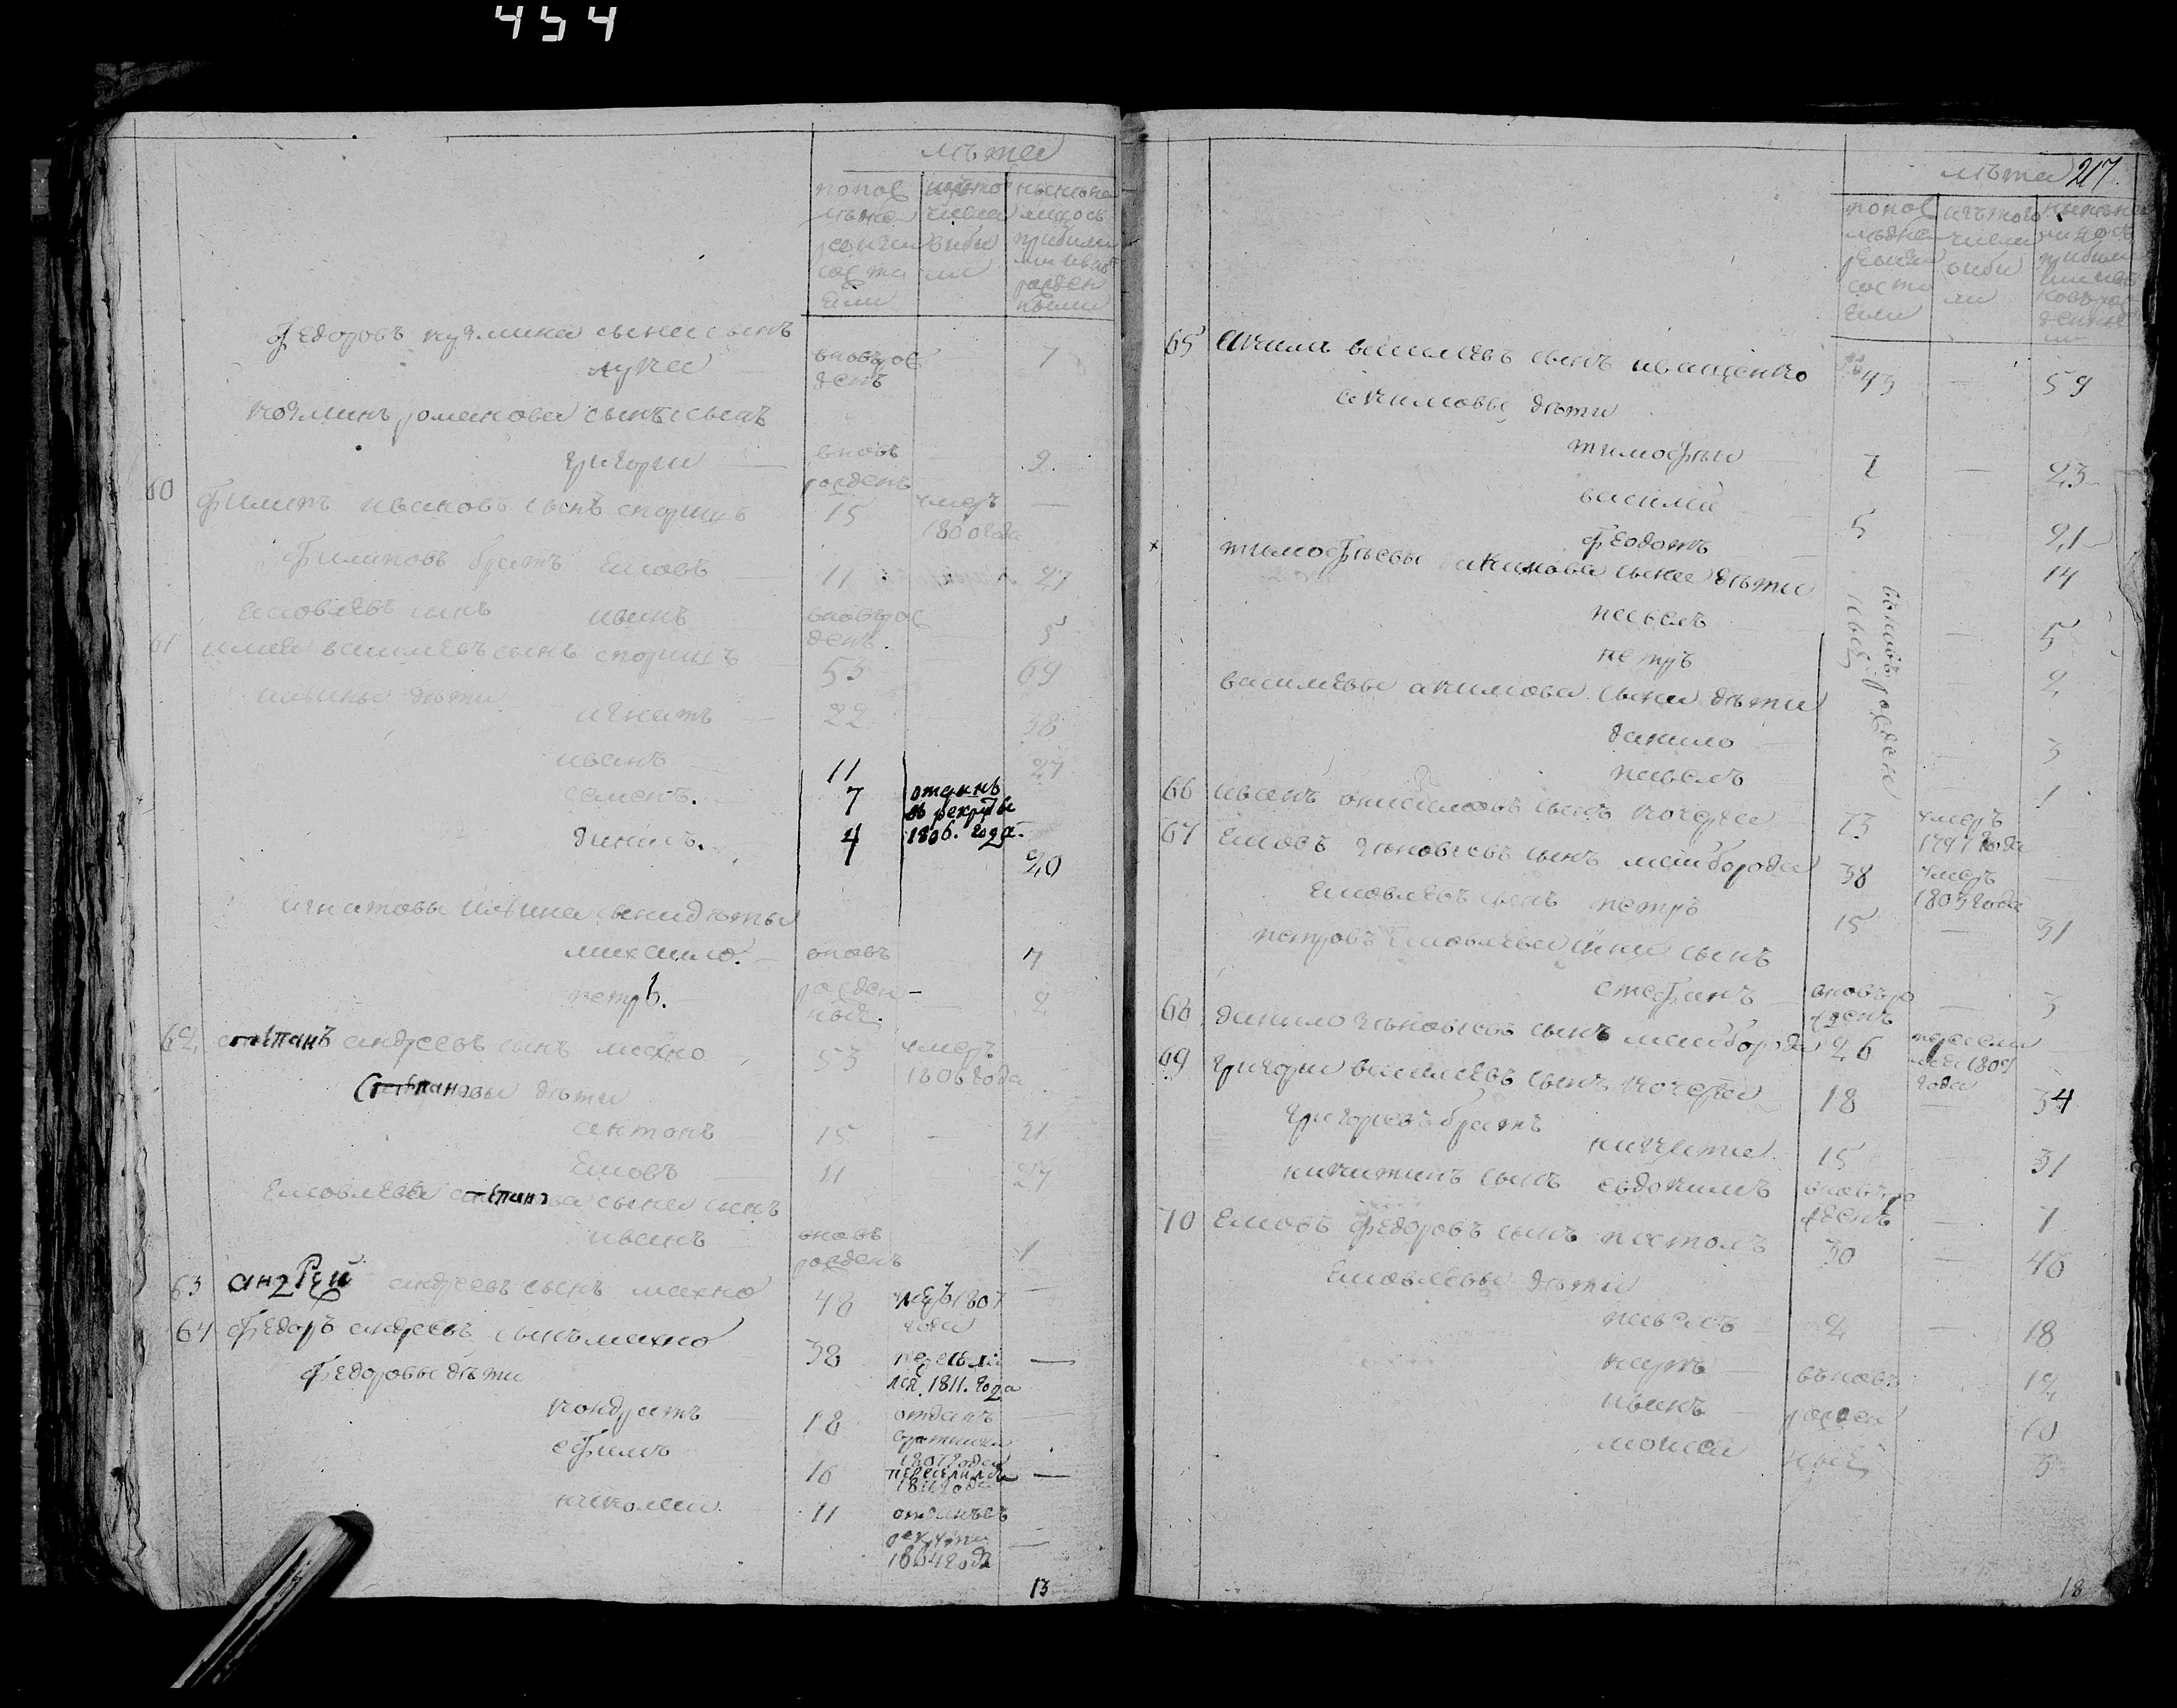 454
лѣта
попос
лѣдне
ревизи
сос то
яли
исътого
числа
выбы
ли
нынѣна
лицось
прибыли
рожден
ными
федоровъ кузмина сына сынъ
лука
вновърож
денъ
7
козминъ романова сына сынъ
григори
вновь
рожденъ
9
60 филипъ ивановъ сынъ споришъ 15 умеръ —
1800 года
филиповъ братъ яковъ 11 27
яковлевъ сынъ иванъ вноврож
денъ 5
61 илия василиевъ сынъ споришъ 53 69
ильины дѣти
игнатъ 22 38
иванъ 11 27
семенъ 7 отданъ
въ рекруты
1806. года.
данилъ. 4 20
игнатовы ильина сына дѣти
михаило. вновь 7
петръ. рожден
ные. 2
62 степанъ андреевъ сынъ махно 53 умеръ
1806 года
степановы дѣти
антонъ 15 — 31
яковъ 11 27
яковлева степанова сына сынъ
иванъ вновь
рожденъ 1
63 андрей андреевъ сынъ махно 48 умеръ 1807
года —
64 федоръ андреевъ сынъ махно 38 переселил
ся. 1811. года —
федоровы дѣти
кондратъ 18 отданъ
1807 года
ефимъ 16 переселился
1811 года —
николаи 11 отданъ въ
рекруты
1804 года —
13
лѣта 217.
попос
лѣдне
ревизи
состо
яли
исътого
числа
выбы
ли
нынѣна
лицось
прибыли
65 акимъ василиевъ сынъ иващенко 43 — 59
акимовы дѣти
тимофѣи 7 — 23
василии 5 21
феодотъ 14
тимофѣевы акимова сына дѣти
въновь рожден
ные
павелъ — 5
петръ — 2
василиевы акимова сына дѣти
данило — 3
павелъ 1
66 иванъ онисимовъ сынъ кочерга 73 умеръ
1797 года
67 яковъ зѣновиевъ сынъ маиборода 38 умеръ —
1803 года
яковлевъ сынъ петръ 15 — 31
петровъ яковлева сына сынъ
стефанъ вновъро
жденъ — 3
68 данило зѣновиевъ сынъ маиборода 26 пересели
лся 1809
года
69 григори василиевъ сынъ кочерга 18 — 34
григориевъ братъ
никита 15 31
никитинъ сынъ евдокимъ вновъро
жденъ — 7
70 яковъ федоровъ сынъ постолъ 30 — 46
яковлевы дѣти
павелъ 2 — 18
карпъ вьновь 12
иванъ рожден 10
моисеи ные 3
18